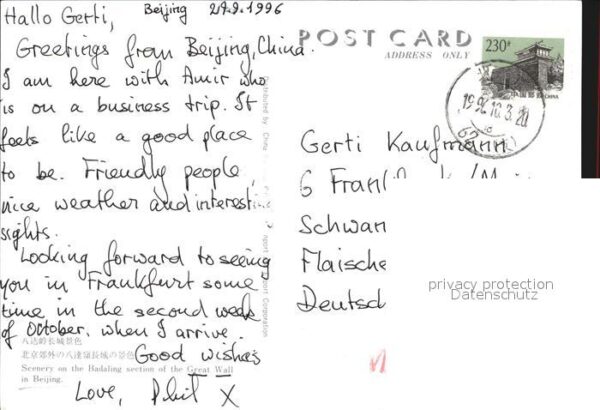 Hallo Gerti,
Beijing 29.9.1996
Greetings from Beijing, China.
I am here with Amir who
is on a business trip. It
feels like a good place
to be. Friendly people,
nice weather and interest.
sights.
Looking forward to seeing
you in Frankfurt some
time in the second week
of October, when I arrive.
Good wishes
Love, Phil X
八达岭长城景色
北京郊外の八達嶺長城の景色
Scenery on the Badaling section of the Great Wall
in Beijing.
Corporation
POST CARD
ADDRESS ONLY
230
CHINA
Gerti Kaufmann
6
Schwan
Flaische
Deutsch
privacy protection
Datenschutz